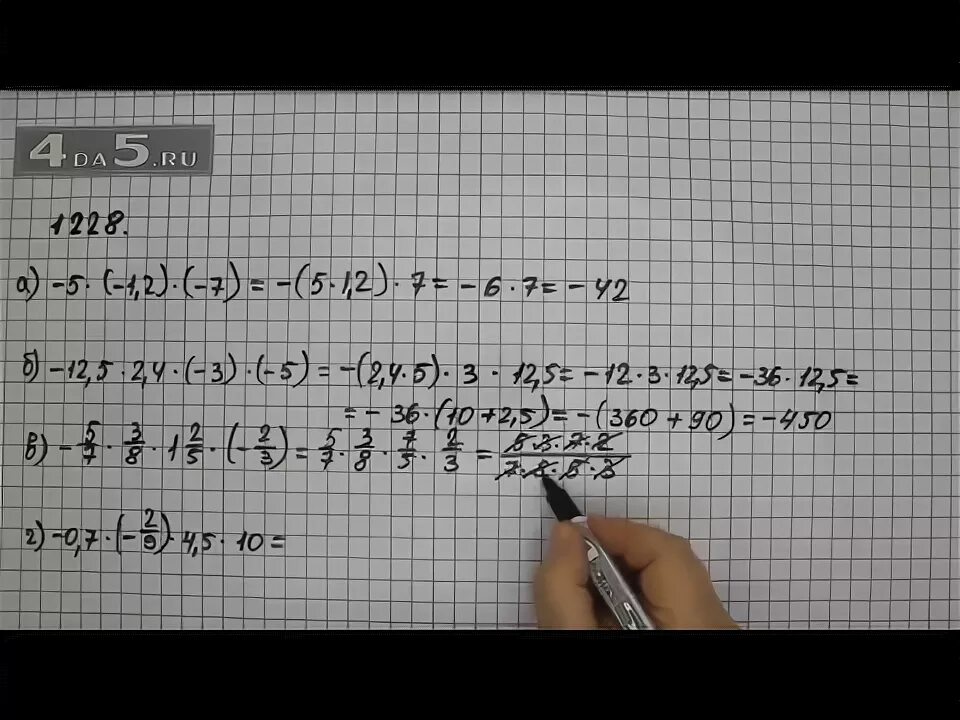 4DA5.RU
1228.
а) -5·(-1,2)·(-7) = -(5·1,2)·7 = -6·7 = -42
б) -12,5·2,4·(-3)·(-5) = -(2,4·5)·3·12,5 = -12·3·12,5 = -36·12,5 =
= -36·(10+2,5) = -(360+90) = -450
в) -5/7·3/8·1 2/5·(-2/3) = 5/7·3/8·7/5·2/3 = 5·3·7·2/7·8·5·3
г) -0,7·(-2/9)·4,5·10 =